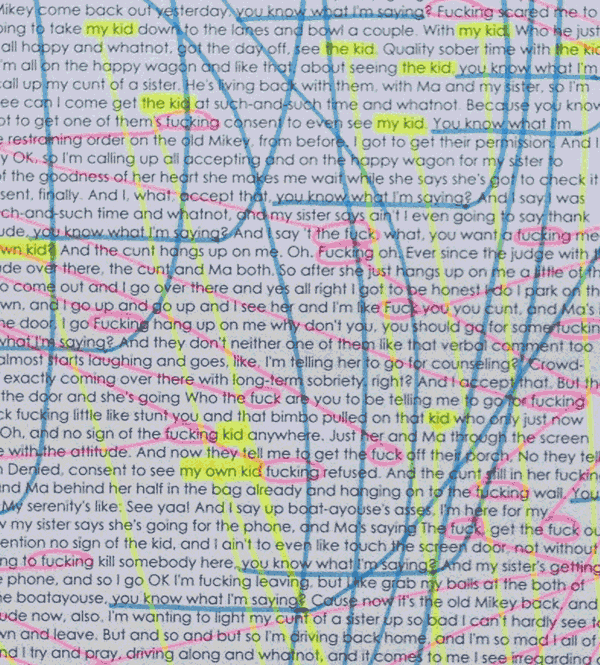 Mikey come back out yesterday, you know what I'm saying? Fucking scared me to
ing to take my kid down to the lanes and bowl a couple. With my kid. Who he just
all happy and whatnot, got the day off, see the kid. Quality sober time with the kid
m all on the happy wagon and like that, about seeing the kid, you know what I'm
all up my cunt of a sister, he's living back with them, with Ma and my sister, so I'm
ee can I come get the kid at such-and-such time and whatnot. Because you know
ot to get one of them's fucking consent to even see my kid. You know what I'm
restraining order on the old Mikey, from before. I got to get their permission. And I
y OK, so I'm calling up all accepting and on the happy wagon for my sister to
f the goodness of her heart she makes me wait while she says she's got to check it
sent, finally. And I, what, accept that, you know what I'm saying? And I say I was
ch-and-such time and whatnot, and my sister says ain't I even going to say thank
ude, you know what I'm saying? And I say the fuck, what, you want a fucking me
wn kid? And the cunt hangs up on me. Oh. Fucking oh. Ever since the judge with
de over there, the cunt and Ma both. So after she just hangs up on me a little of th
o come out and I go over there and yes all right I got to be honest I do I park on th
wn, and I go up and go up and I see her and I'm like Fuck you you cunt, and Ma's
he door I go Fucking hang up on me why don't you, you should go for some fuckin
what I'm saying? And they don't neither one of them like that verbal comment too
almost starts laughing and goes, like, I'm telling her to go for counseling? Crowd
exactly coming over there with long-term sobriety, right? And I accept that. But th
the door and she's going Who the fuck are you to be telling me to go to fucking
ck fucking little like stunt you and that bimbo pulled on that kid who only just now
Oh, and no sign of the fucking kid anywhere. Just her and Ma through the screen
e with the attitude. And now they tell me to get the fuck off their porch. No they tell
n Denied, consent to see my own kid fucking refused. And the cunt still in her fuckin
nd Ma behind her half in the bag already and hanging on to the fucking wall. You
y serenity's like: See yaa! And I say up boat-ayouse's asses, I'm here for my
w my sister says she's going for the phone, and Ma's saying The fuck, get the fuck ou
ention no sign of the kid, and I ain't to even like touch the screen door, not without
ng to fucking kill somebody here, you know what I'm saying? And my sister's getting
phone, and so I go OK I'm fucking leaving, but I like grab my balls at the both of
he boatayouse, you know what I'm saying? Cause now it's the old Mikey back, and
ude now, also. I'm wanting to light my cunt of a sister up so bad I can't hardly see to
wn and leave. But and so and but so I'm driving back home, and I'm so mad I all of
nd I try and pray, driving along and whatnot, and it comes to me I see irregarding